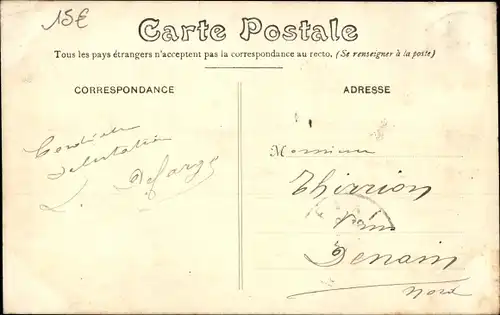 15€
Carte Postale
Tous les pays étrangers n'acceptent pas la correspondance au recto. (Se renseigner à la poste)
CORRESPONDANCE
Cordiale
Salutation
L. Defarge
ADRESSE
Monsieur
Thirion
Denain
Nord